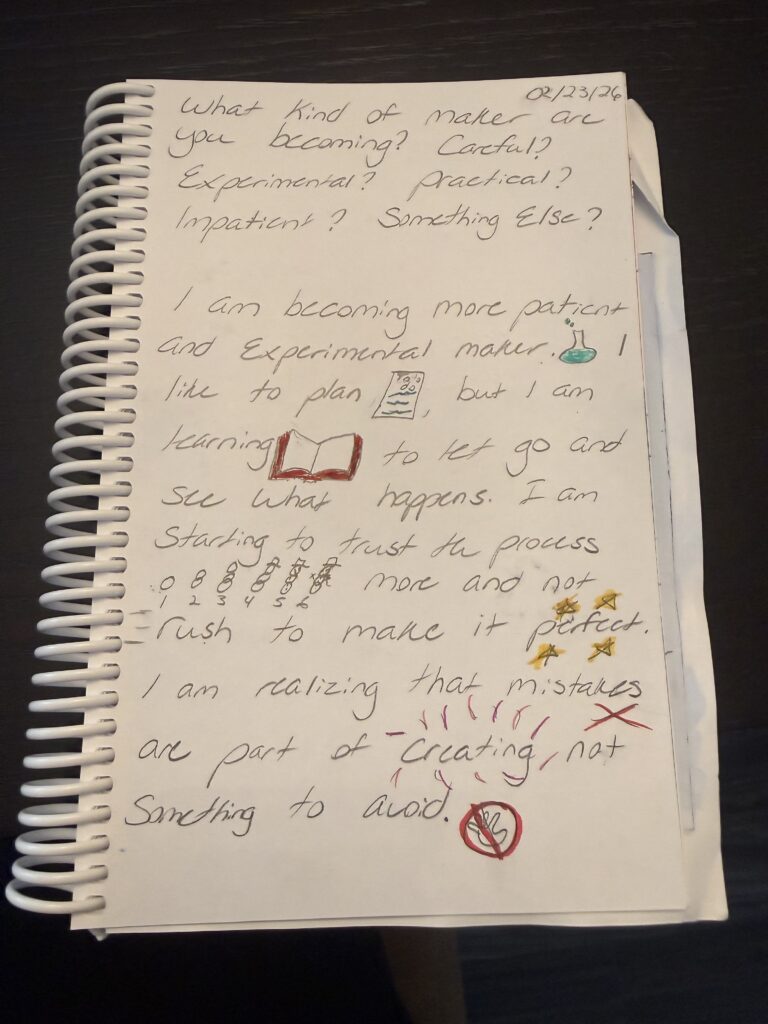 02/23/26
What kind of maker are
you becoming? Careful?
Experimental? practical?
Impatient? Something Else?
I am becoming more patient
and Experimental maker. I
like to plan, but I am
learning to let go and
see what happens. I am
Starting to trust the process
more and not
1 2 3 4 5 6
rush to make it perfect.
I am realizing that mistakes
are part of creating, not
Something to avoid.